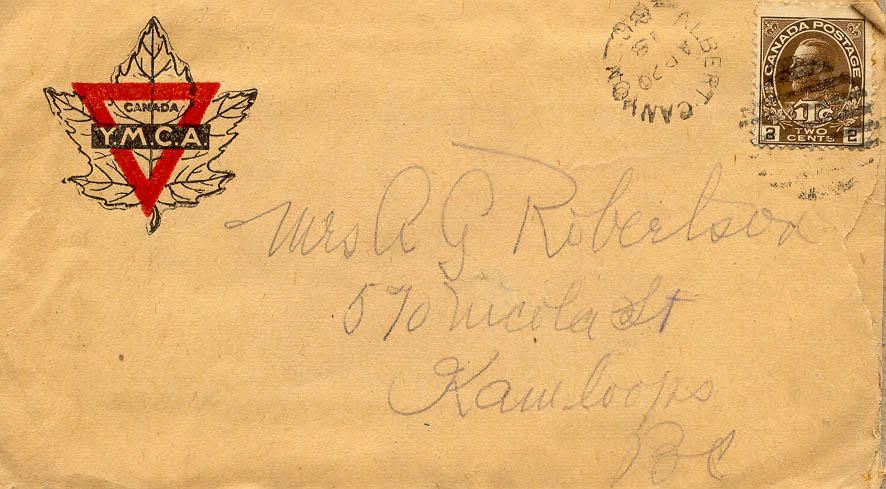 CANADA
Y.M.C.A.
ALBERT CANYON
AP 20
B.C.
CANADA POSTAGE
1Tc
2 TWO 2
CENTS
Mrs A G Robertson
570 Nicola St
Kamloops
BC